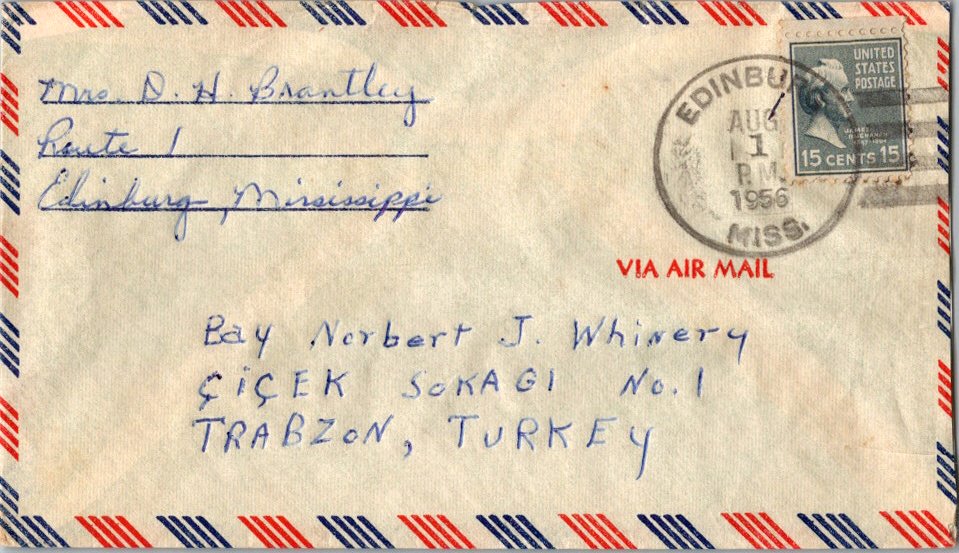 Mrs. D. H. Brantley
Route 1
Edinburg, Mississippi
EDINBURG
AUG
1
P.M.
1956
MISS.
UNITED
STATES
POSTAGE
JAMES
BUCHANAN
15 CENTS 15
VIA AIR MAIL
Bay Norbert J. Whinery
ÇİÇEK SOKAGI No. 1
TRABZON, TURKEY